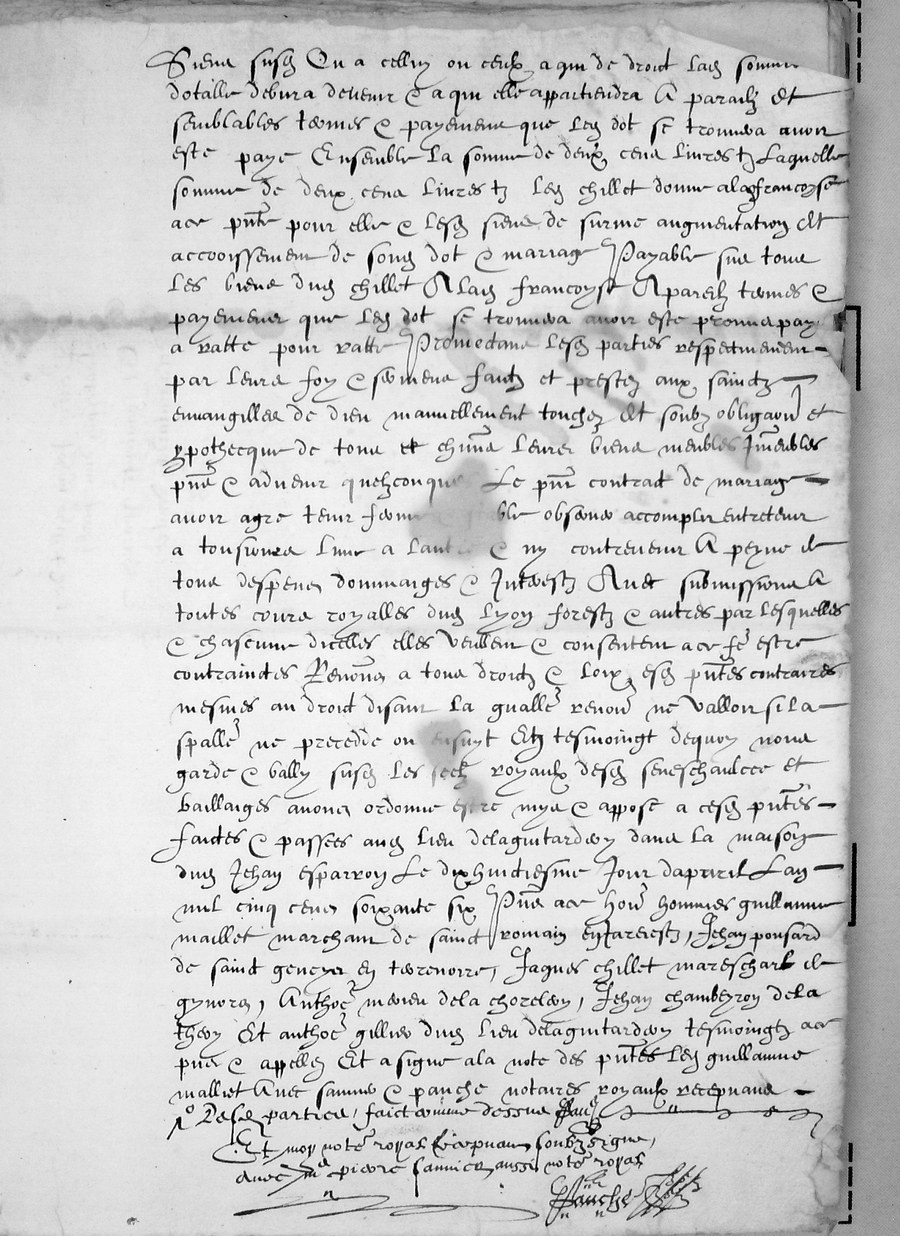 Siens susd Ou a celluy ou ceulx a qui de droict lad somme
dotalle debvra devenir & a qui elle appartiendra A parailz Et
semblables termes & payemens que led dot se trouvera avoir
este paye Ensemble la somme de deux cens livres tz Laquelle
somme de deux cens livres tz led chillet donne a lad francoyse
ace pnte pour elle & lesd siens de survie augmentation Et
accroissement de sond dot & mariage Payable sur tous
les biens dud chillet A lad francoyse A pareilz termes &
payemens que led dot se trouvera avoir este premier paye
a ratte pour ratte Promectans lesd parties respectivement
par leurs foy & sermens faictz et prestez aux sainctz
euvangilles de dieu manuellement touchez Et soubz obligaon et
ypothecque de tous et chuns leurs biens meubles Immeubles
pns & advenir quelzconques Le pnt contract de mariage
avoir agre tenir ferme observer accomplir entretenir
a tousjours l'une a & ny contrevenir A peyne de
tous despens dommaiges & Interestz Avec submissions A
toutes cours royalles dud Lyon forestz & autres par lesquelles
& chascune dicelles elles veullent & consentent ace fe estre
contrainctes Renons a tous droictz & loix esd pntes contraires
mesmes au droit disant la gnalle renon ne valloir si la
spalle ne precedde ou ensuyt En tesmoingt dequoy nous
garde & bally susd les seelz royaulx desd seneschaulcee et
bailliages avons ordonne estre mys & appose a cesd pntes
faictes & passees aud lieu delaguitardery dans la maison
dud Jehan esparron Le dixhuictiesme Jour dapvril Lan
mil cinq cens soixante six Pns ace hon hommes guillaume
maillet marchant de sainct romain en jarestz, Jehan ponsard
de sainct geneyz en terrenoire, Jaques chillet mareschal de
Anthoe dela Jehan chambeyron dela
Et anthoe gillier dud lieu delaguitardery tesmoingtz ace
pns & appellez Et a signe ala note des pntes led guillaume
malliet Avec & panche notaires royaulx recepvans
desd parties, faict comme dessus
Et moy note royal recepvant soubzsigne,
avec me pierre aussi note royal
Panche